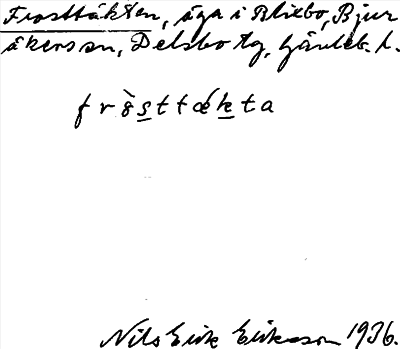 Frosttäkten, äga i Blixbo, Bjur
åkers sn, Delsbo tg, Gävleb. l.
fròs̲ttǽk̲ta
Nils Erik Eriksson 1936.